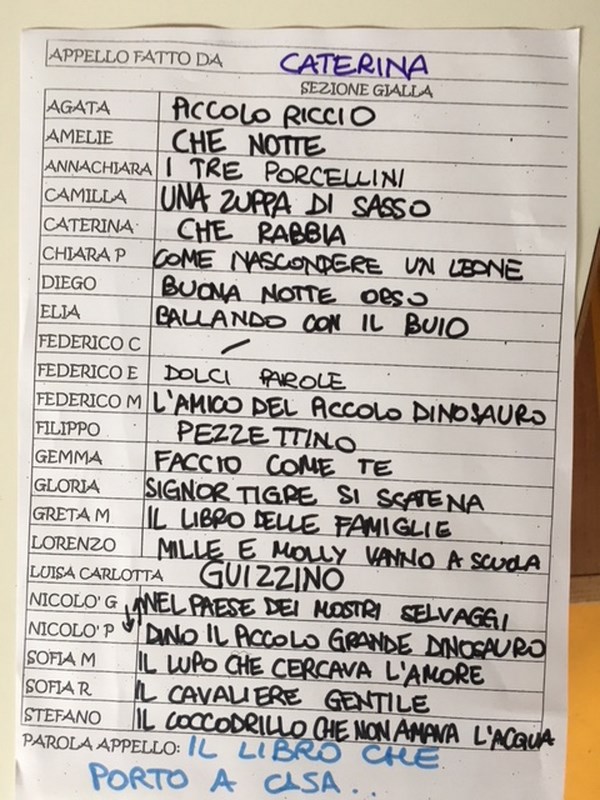 APPELLO FATTO DA CATERINA
SEZIONE GIALLA
AGATA PICCOLO RICCIO
AMELIE CHE NOTTE
ANNACHIARA I TRE PORCELLINI
CAMILLA UNA ZUPPA DI SASSO
CATERINA CHE RABBIA
CHIARA P COME NASCONDERE UN LEONE
DIEGO BUONA NOTTE ORSO
ELIA BALLANDO CON IL BUIO
FEDERICO C /
FEDERICO E DOLCI PAROLE
FEDERICO M L'AMICO DEL PICCOLO DINOSAURO
FILIPPO PEZZETTINO
GEMMA FACCIO COME TE
GLORIA SIGNOR TIGRE SI SCATENA
GRETA M IL LIBRO DELLE FAMIGLIE
LORENZO MILLE E MOLLY VANNO A SCUOLA
LUISA CARLOTTA GUIZZINO
NICOLO' G NEL PAESE DEI MOSTRI SELVAGGI
NICOLO' P DINO IL PICCOLO GRANDE DINOSAURO
SOFIA M IL LUPO CHE CERCAVA L'AMORE
SOFIA R IL CAVALIERE GENTILE
STEFANO IL COCCODRILLO CHE NON AMAVA L'ACQUA
PAROLA APPELLO: IL LIBRO CHE
PORTO A CASA..